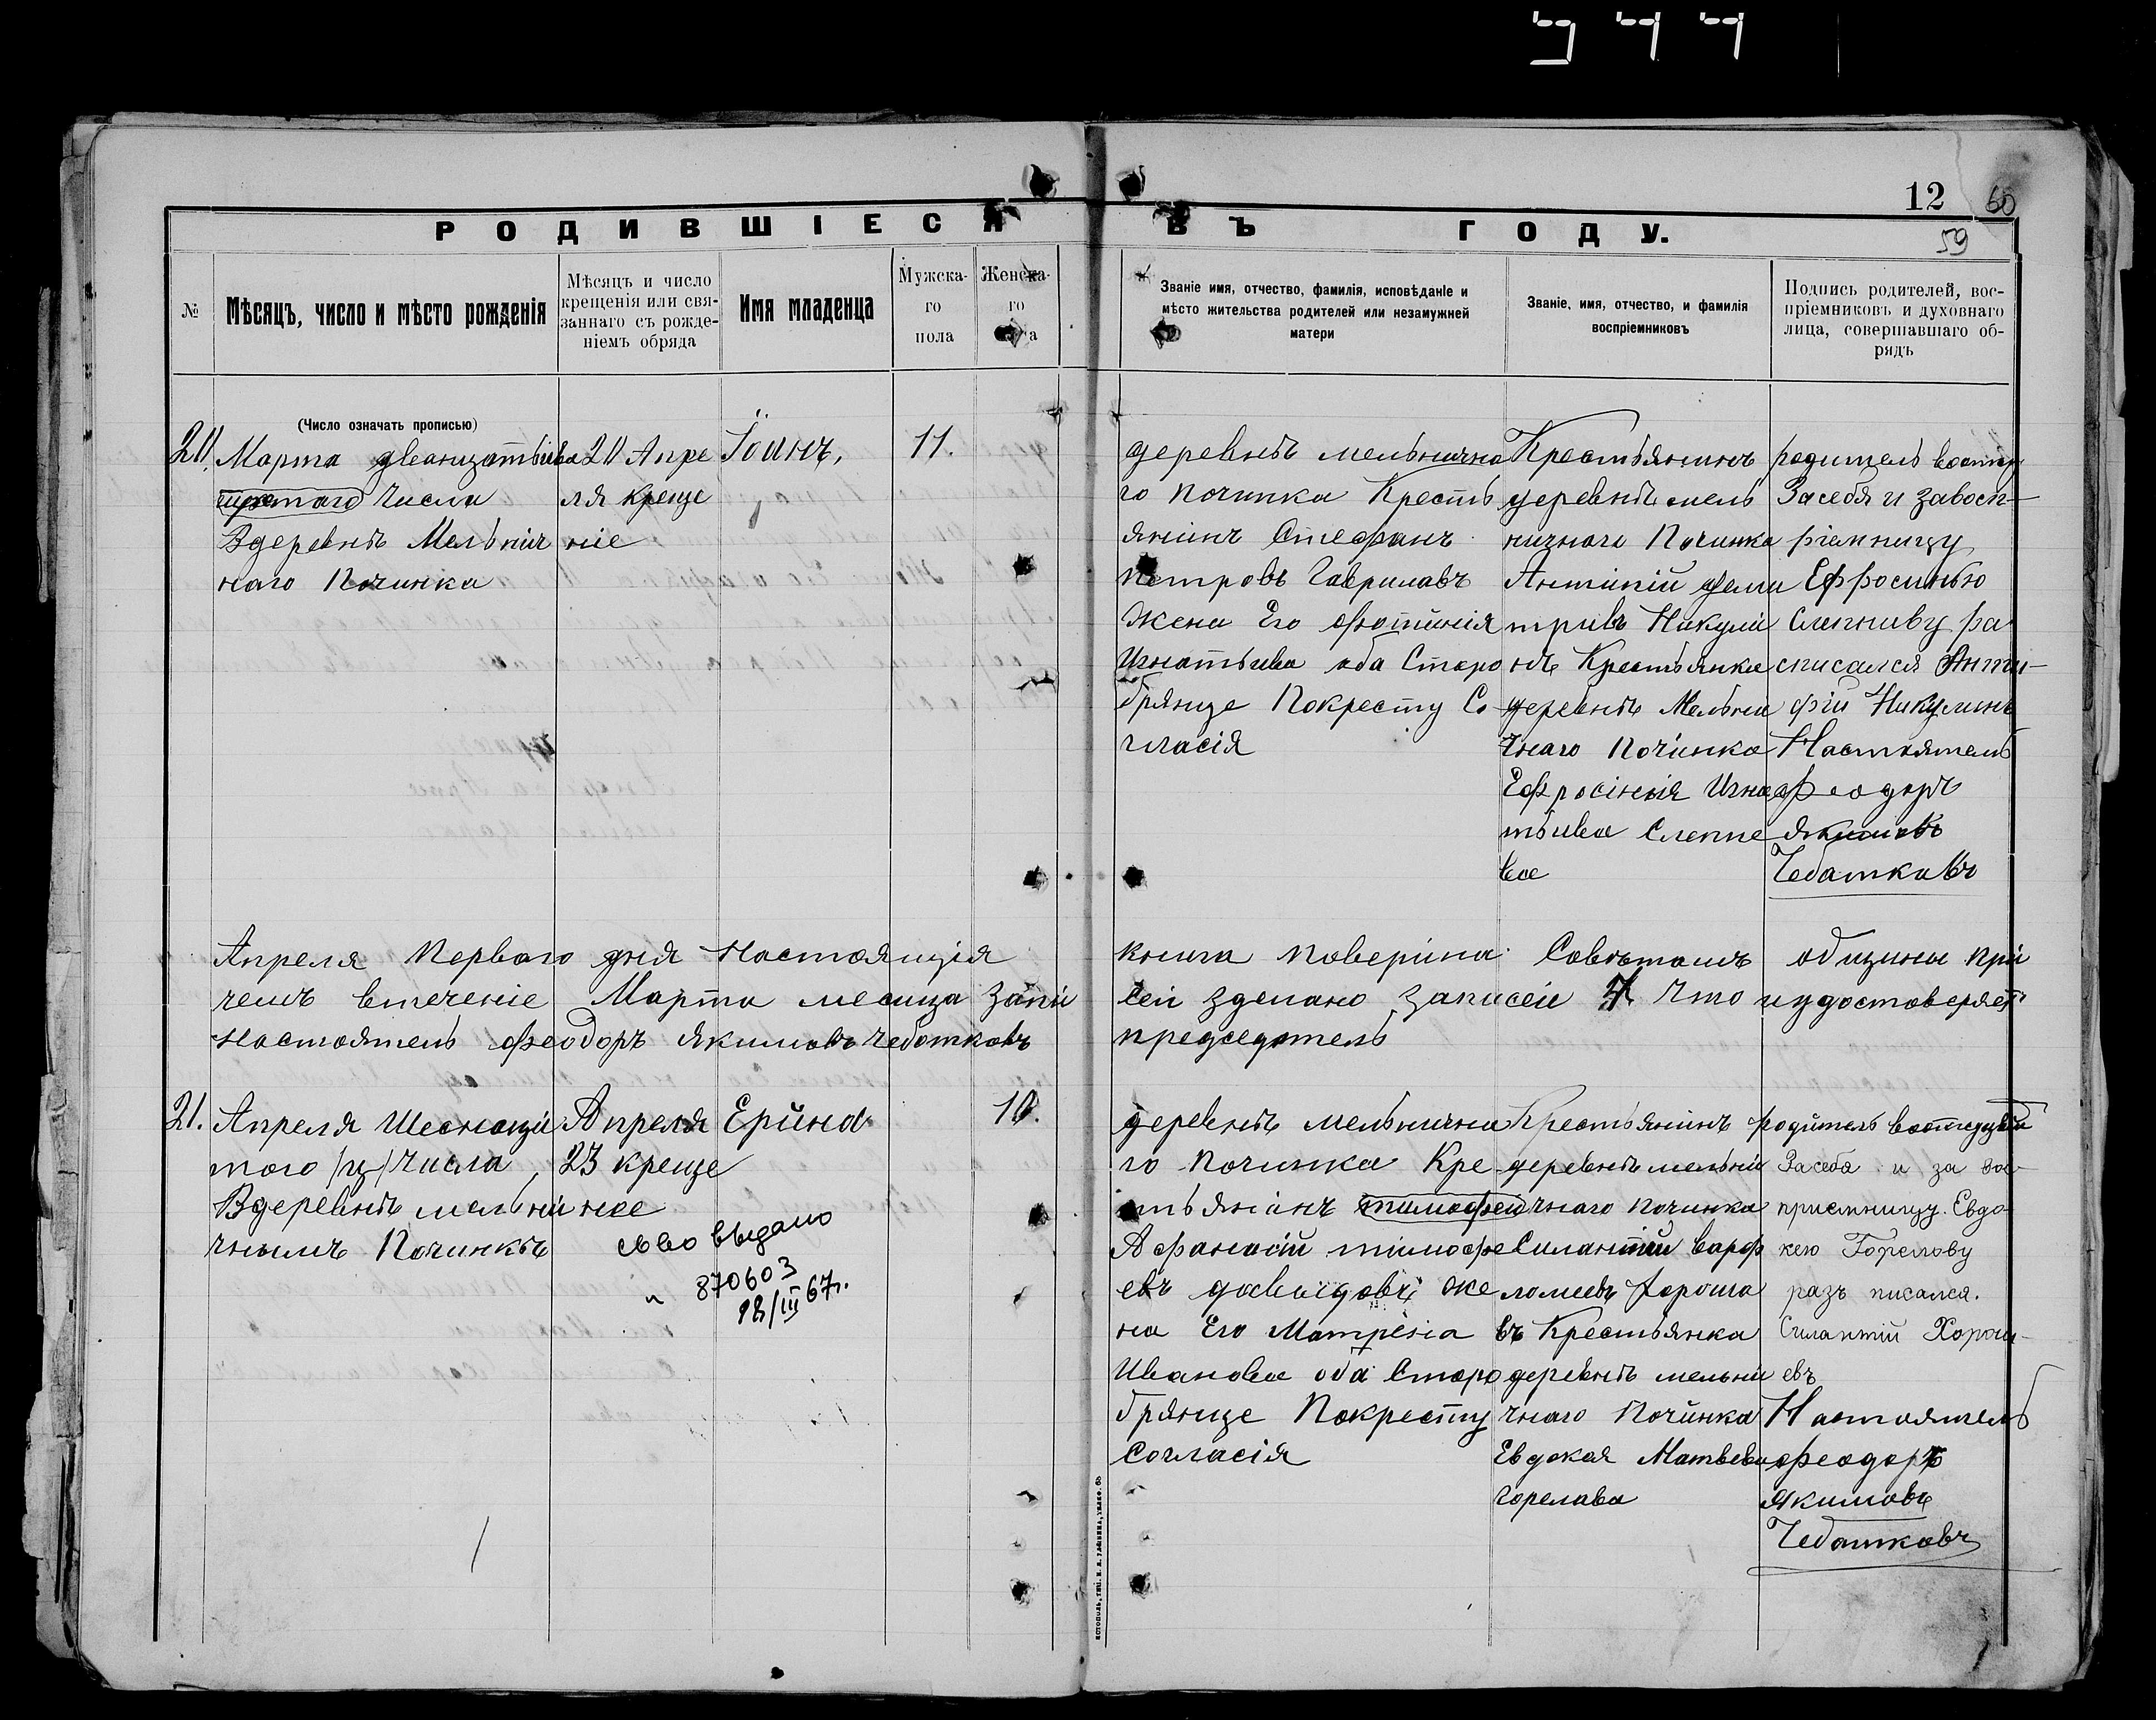 12 60
59
РОДИВШІЕСЯ ВЪ ГОДУ.
№
Мѣсяцъ, число и мѣсто рожденія
Мѣсяцъ и число
крещенія или свя-
заннаго съ рожде-
ніемъ обряда
Имя младенца
Мужска-
го
пола
Женска-
го
Званіе имя, отчество, фамилія, исповѣданіе и
мѣсто жительства родителей или незамужней
матери
Званіе, имя, отчество, и фамилія
воспріемниковъ
Подпись родителей, вос-
пріемниковъ и духовнаго
лица, совершавшаго об-
рядъ
(Число означать прописью)
20.
Марта
числа
Вдеревнѣ Мельнич
наго Починка
20 Апре
ля креще
ніе
Іоанъ,
11.
деревнѣ мельнично
го починка Кресть
янинъ Стефанъ
Петровъ Гавриловъ
Жена Его Фотинія
Игнатьива оба Старо
брянце Покресту Со
гласія
Крестьянинъ
деревнѣ мель
ничнаго Починка
Антипій дими
тривъ Никули
нъ Крестьянка
деревнѣ Мельни
чнаго Починка
Ефросінія Игна
тьива Слепне
ва
родитель
Засебя и завосп-
ріемницу
Ефросинью
Слепниву ра
списался Анти-
фій Никулинъ
Настоятель
Феодоръ
Якимовъ
Чебатковъ
Апреля Перваго дня Настоящія книга поверіна Совѣтамъ общины при
чемъ втеченіе Марта месица запи сеи зделано записеи 4 Что иудостоверяет
Настоятель Феодоръ Якимовъ Чеботковъ председатель
21.
Апреля Шеснаци
того /ц/ числа
Вдеревнѣ мельни
чнымъ Починкѣ
Апреля
23 креще
ние
Ерина
10.
св-во выдано
870603
18/III 67г.
деревнѣ мельнично
го Починка Кре-
стьянинъ тимофеи
Афанасій тимофе
евъ давыдовъ же
на Его Матрёна
Ивановна оба Старо
брянце Покресту
Согласія
Крестьянинъ
деревнѣ мельни
чнаго Починка
Силантии варф
ломеевъ Хороше
въ Крестьянка
деревнѣ мельни
чнаго Починка
Евдокея Матвевна
горелава
родитель
Засебя и за вос-
приемницу Евдо-
кею Горелову
разъ писался.
Силантій Хорош-
евъ
Настоятель
Феодоръ
Якимовъ
Чебатковъ